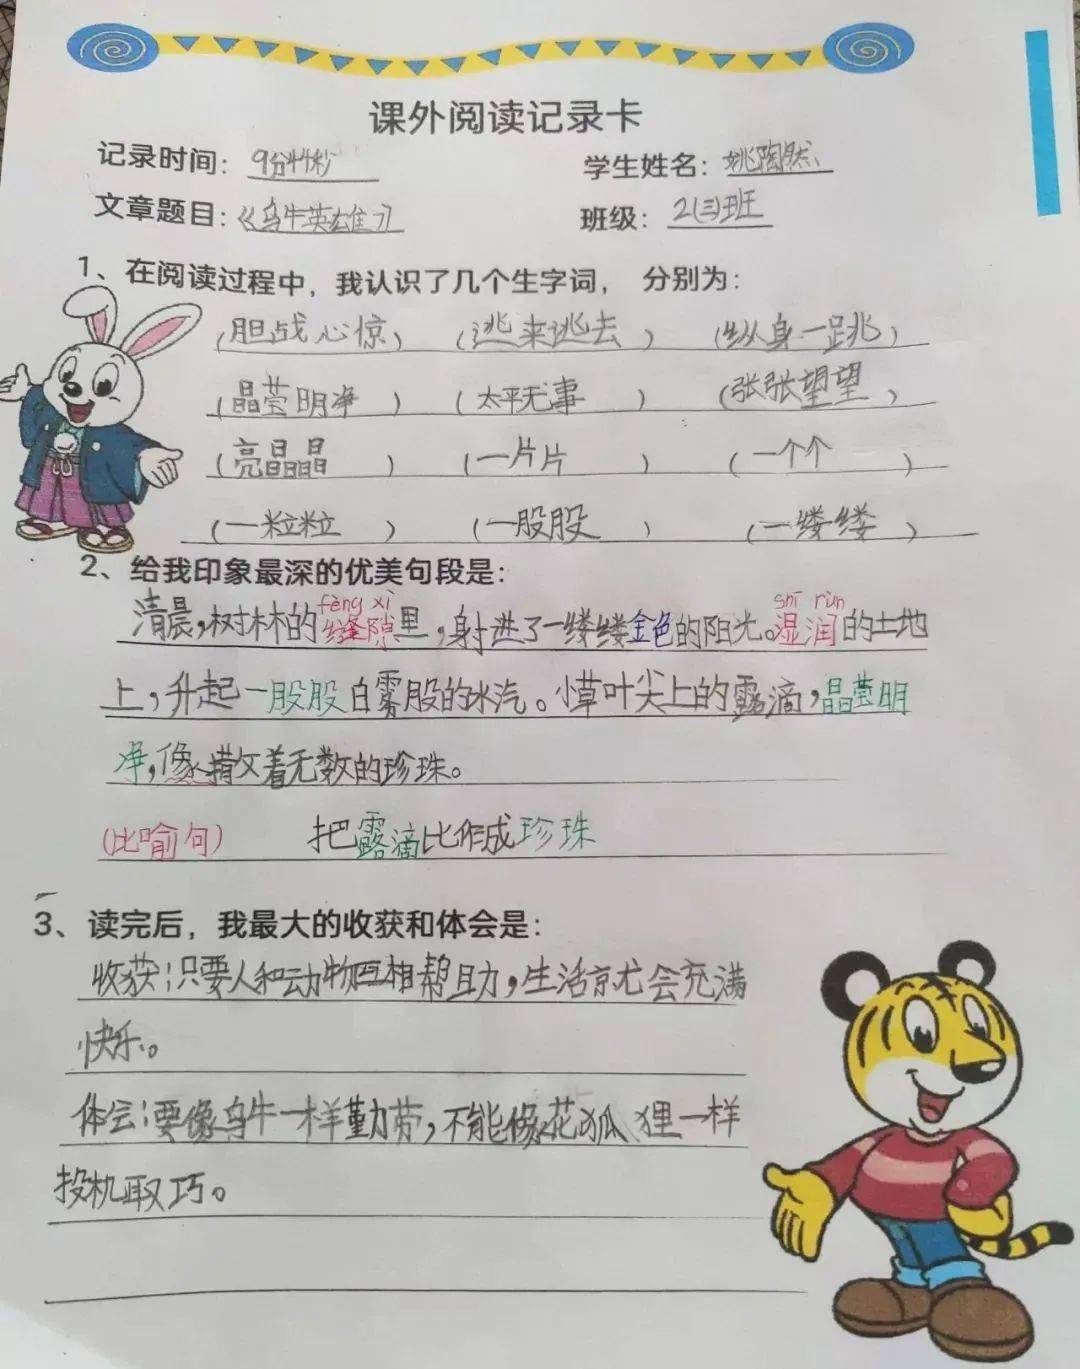 课外阅读记录卡
记录时间：9分44秒 学生姓名：姚陶然
文章题目：《乌牛英雄》 班级：2(三)班
1、在阅读过程中，我认识了几个生字词， 分别为：
(胆战心惊) (逃来逃去) (纵身一跳)
(晶莹明净) (太平无事) (张张望望)
(亮晶晶) (一片片) (一个个)
(一粒粒) (一股股) (一缕缕)
2、给我印象最深的优美句段是：
fèng xì shī rùn
清晨，树林的缝隙里，射进了一缕缕金色的阳光。湿润的土地
上，升起一股股白雾般的水汽。小草叶尖上的露滴，晶莹明
净，像撒着无数的珍珠。
(比喻句) 把露滴比作成珍珠
3、读完后，我最大的收获和体会是：
收获：只要人和动物互相帮助，生活就会充满
快乐。
体会：要像乌牛一样勤劳，不能像花狐狸一样
投机取巧。